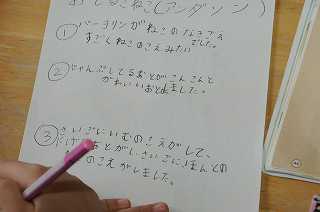 おどるこねこ(アンダソン)
① バーチリンがねこのなきごえ
すごくねこのこえみたい でした。
② じゃんぷしてるおとがこんこんと
かわいいおとでした。
③ さいごにいむのこえがして、
おとがし、さいごにほんとの
のこえがしました。